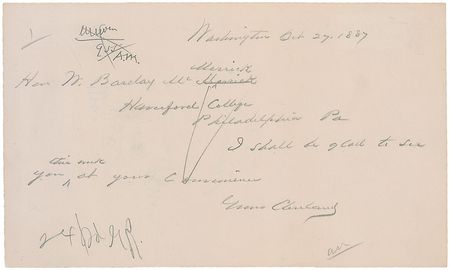 Washington Oct 27. 1887
Merrick
Hon W. Barclay Mc Merrick
Haverford College
Philadelphia Pa
I shall be glad to see
this week
you ^ at your Convenience
Grover Cleveland